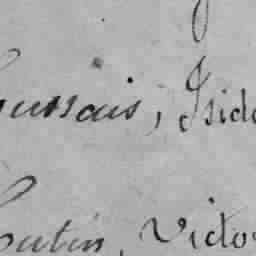 ussais, Isid
utin, Victo